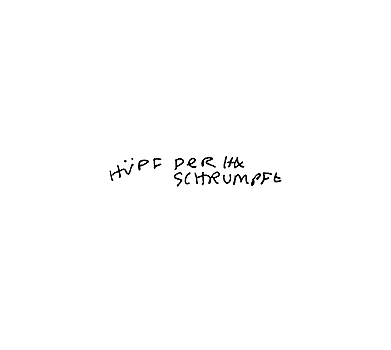 HÜPF DER Hx
SCHRUMPFt